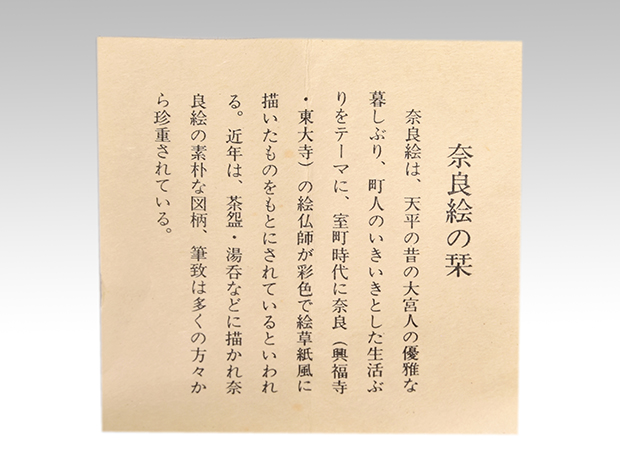 奈良絵の栞
奈良絵は、天平の昔の大宮人の優雅な
暮しぶり、町人のいきいきとした生活ぶ
りをテーマに、室町時代に奈良（興福寺
・東大寺）の絵仏師が彩色で絵草紙風に
描いたものをもとにされているといわれ
る。近年は、茶盌・湯呑などに描かれ奈
良絵の素朴な図柄、筆致は多くの方々か
ら珍重されている。